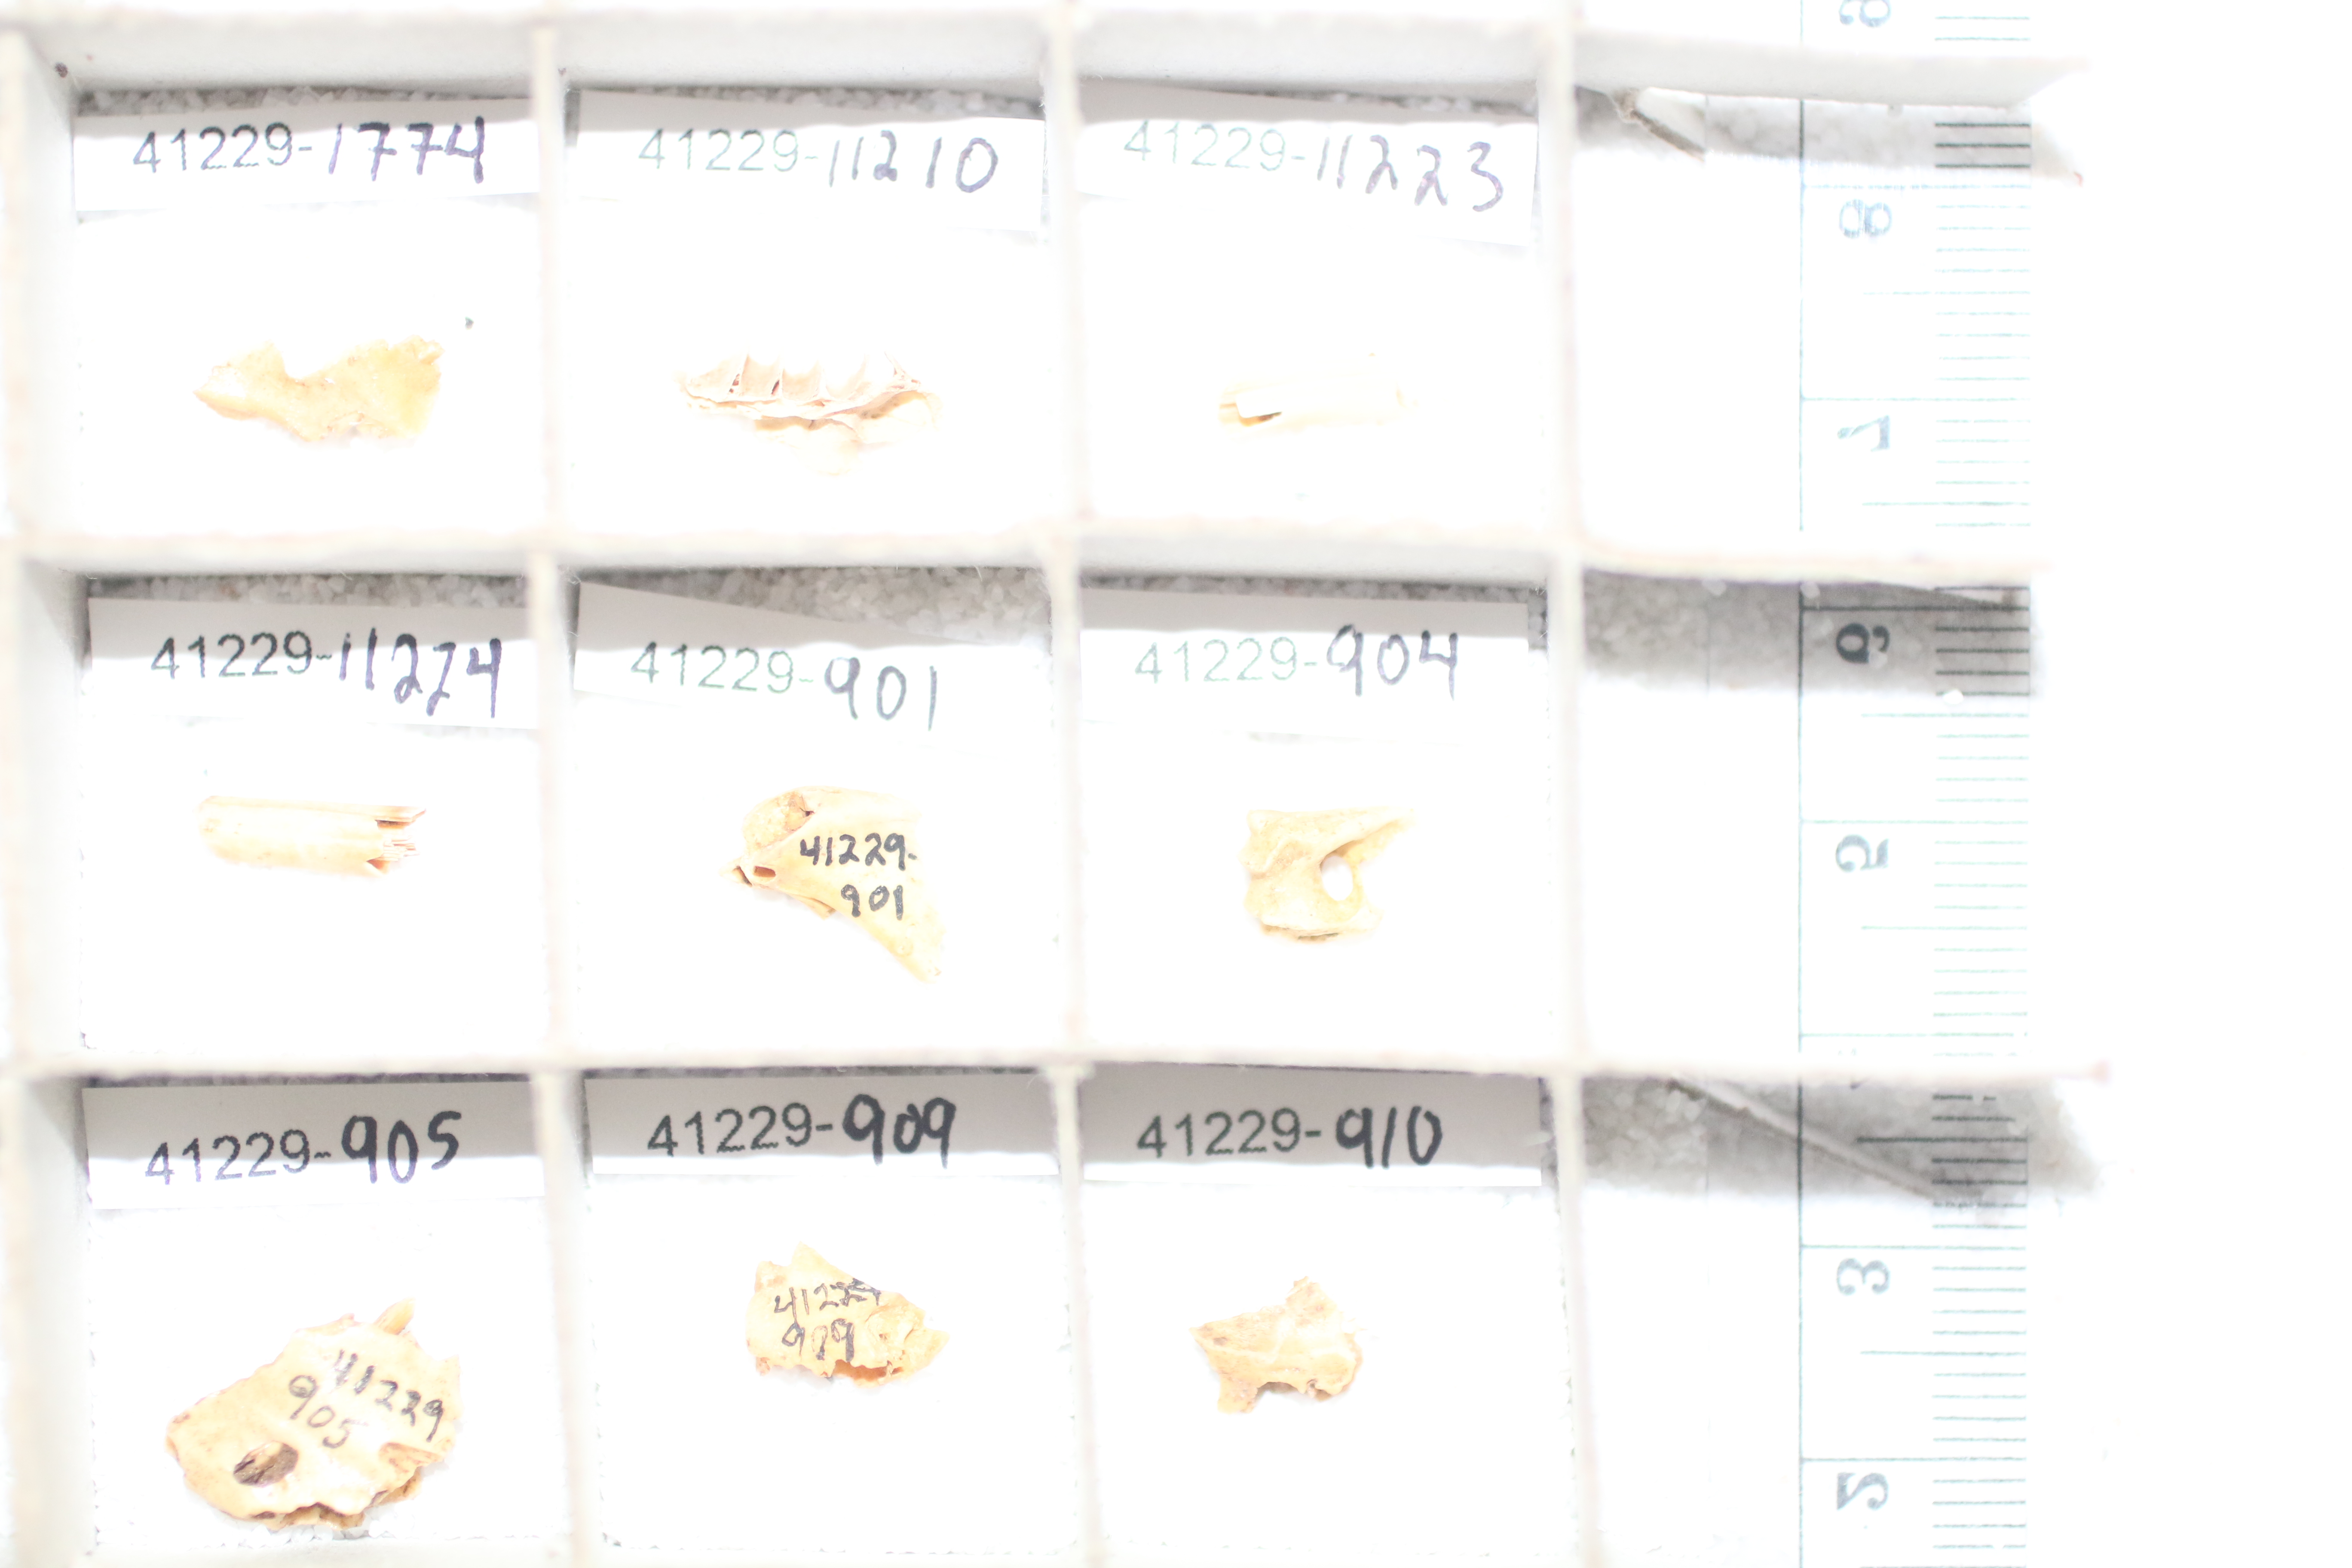 41229-1774
41229-11210
41229-11223
41229-11224
41229-901
41229-904
41229-
901
41229-905
41229-909
41229-910
41229
905
41229
909
8
7
6
5
3
2